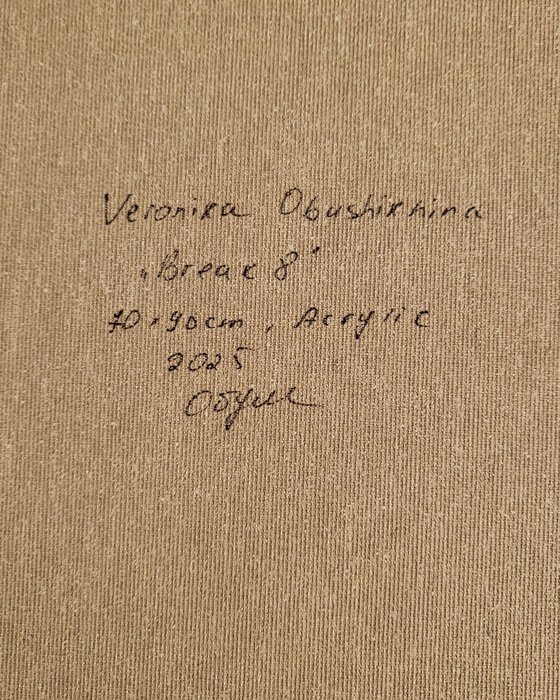 Veronika Obushikhina
„Break 8"
70×90cm, Acrylic
2025
Обуш